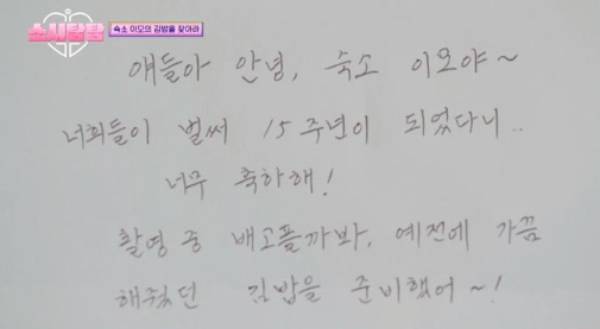 소시탐탐
숙소 이모의 김밥을 찾아라
얘들아 안녕, 숙소 이모야~
너희들이 벌써 15주년이 되었다니..
너무 축하해!
촬영 중 배고플까봐, 예전에 가끔
해줬던 김밥을 준비했어~!